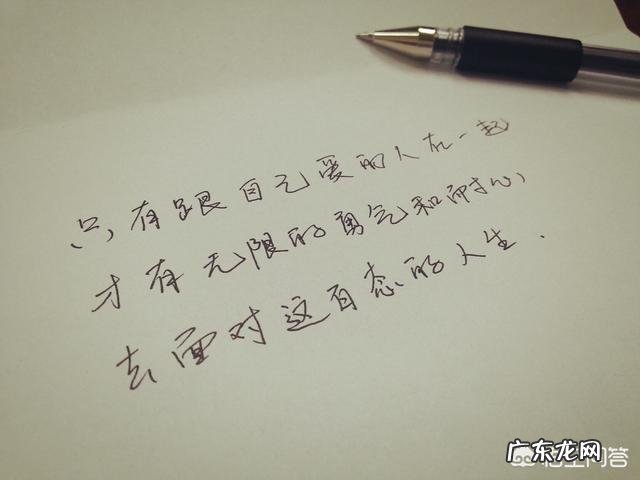 只有跟自己爱的人在一起
才有无限的勇气和耐心
去面对这百态的人生.
广东龙网
悟空问答